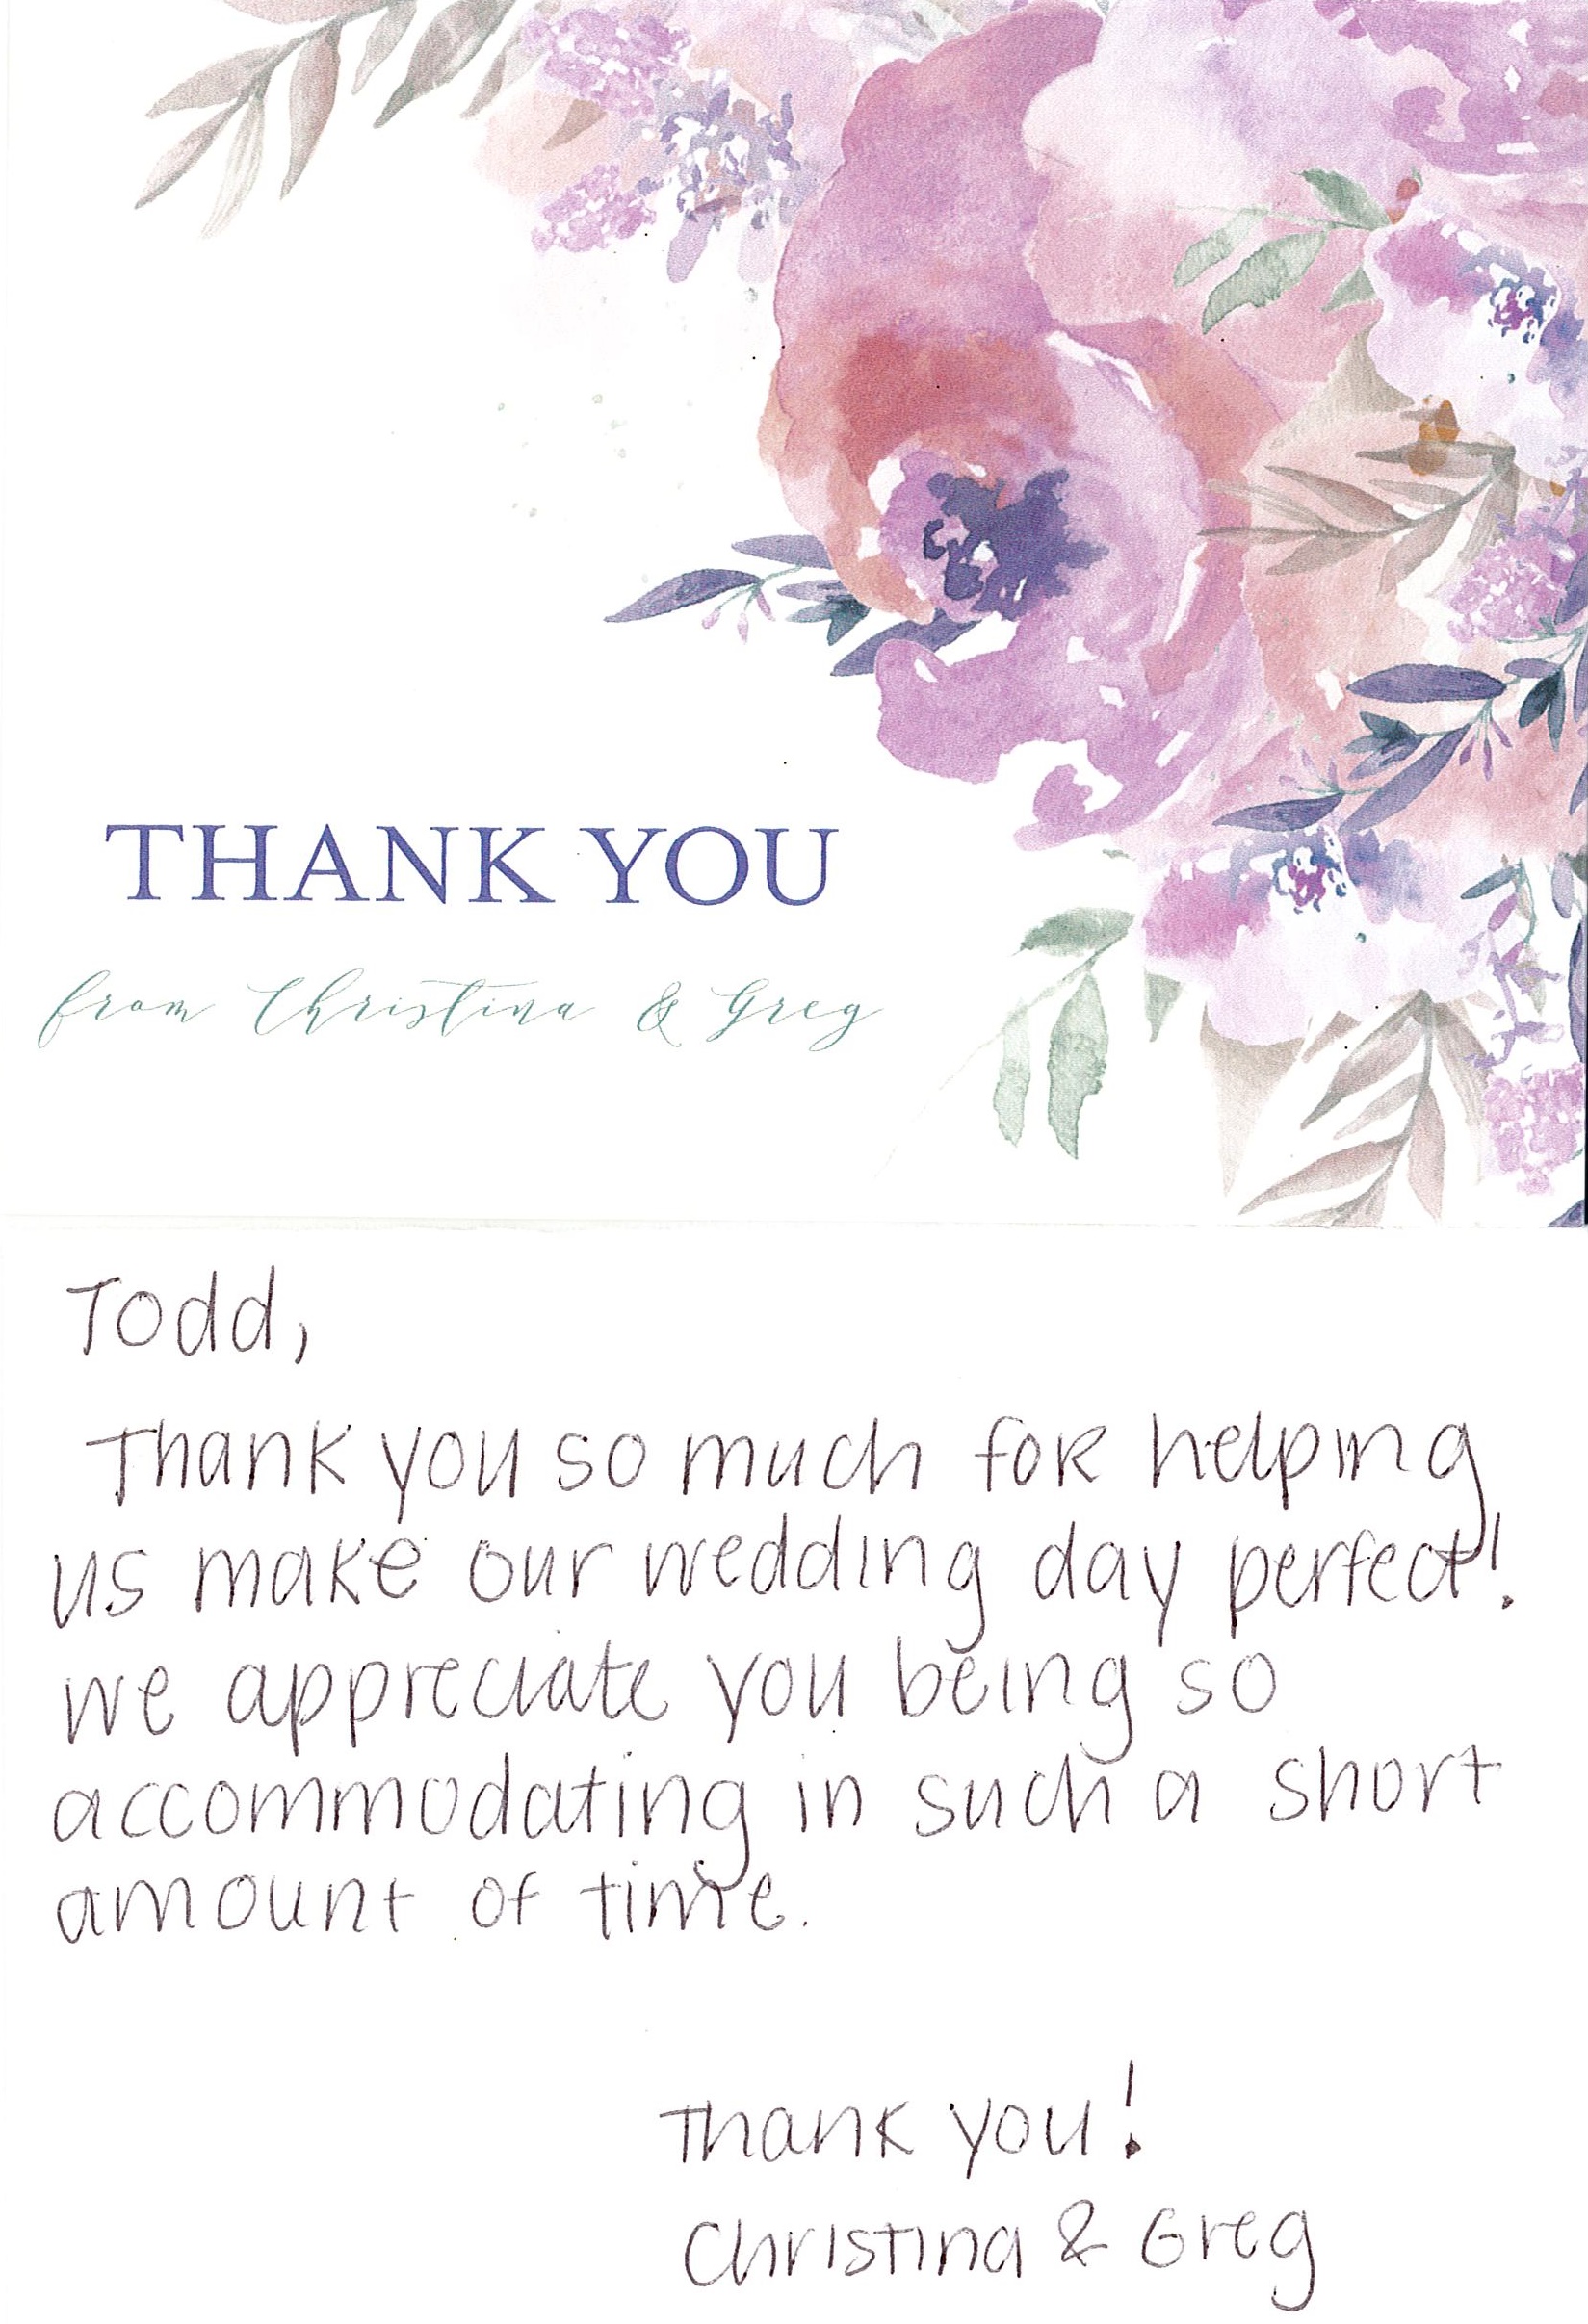 THANK YOU
from Christina & Greg
Todd,
Thank you so much for helping
us make our wedding day perfect!
we appreciate you being so
accommodating in such a short
amount of time.
Thank you!
Christina & Greg